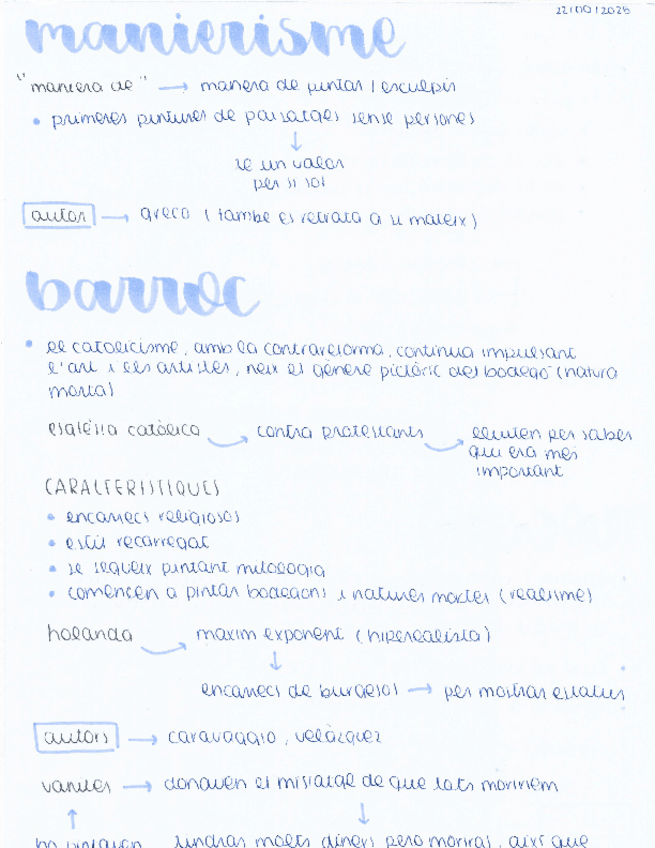 22/10/2025
manierisme
"maniera de" → manera de pintar / esculpir
• primeres pintures de paisatges sense persones
↓
té un valor
per si sol
autor → greco (també es retrata a si mateix)
barroc
• el catolicisme, amb la contrareforma, continua impulsant
l'art i els artistes, neix el gènere pictòric del bodegó (natura
morta)
església catòlica → contra protestants → lluiten per saber
qui era més
important
CARACTERÍSTIQUES
• encàrrecs religiosos
• estil recarregat
• se segueix pintant mitologia
• comencen a pintar bodegons i natures mortes (realisme)
holanda → màxim exponent (hiperrealista)
↓
encàrrecs de burgesos → per mostrar estatus
autors → caravaggio, velàzquez
vanites → donaven el missatge de que tots moririem
↑ ↓
ho pintaven tindràs molts diners però moriràs, així que